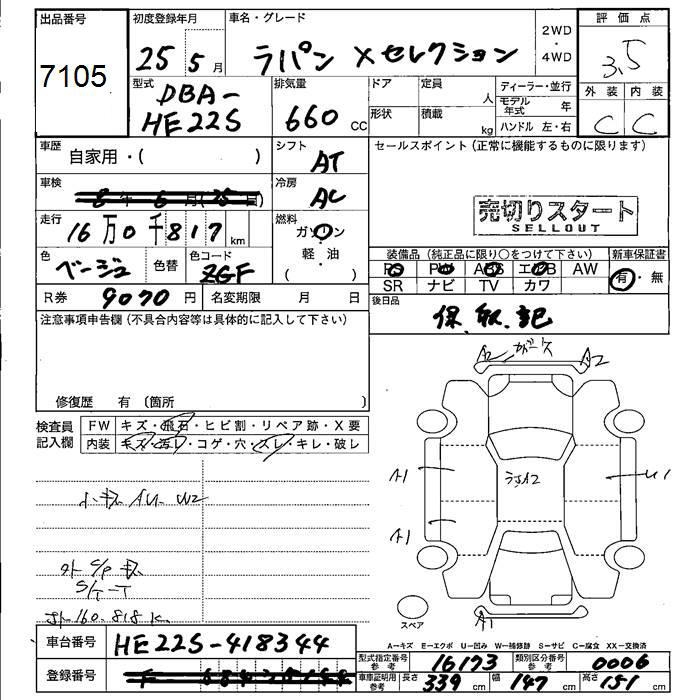 出品番号 初度登録年月 車名・グレード 2WD ・ 4WD 評価点
7105 25年5月 ラパン Xセレクション 3.5
型式 DBA-HE22S 排気量 660cc ドア 定員 人 ディーラー・並行 外装 内装
形状 積載 kg モデル年式 年 C C
ハンドル 左・右
車歴 自家用・( ) シフト AT セールスポイント(正常に機能するものに限ります)
車検 冷房 AC
売切りスタート
SELLOUT
走行 16万0千817km 燃料 ガソリン・軽・油 ( )
色 ベージュ 色替 色コード ZGF
装備品(純正品に限り○をつけて下さい) 新車保証書
PS PW ABS エアB AW 有・無
SR ナビ TV カワ
R券 9070円 名変期限 月 日 後日品
保.取.記
注意事項申告欄(不具合内容等は具体的に記入して下さい)
修復歴 有(箇所 )
検査員記入欄 FW キズ・飛石・ヒビ割・リペア跡・X要
内装 キズ・汚レ・コゲ・穴・スレ・キレ・破レ
A2 A2
A1 U1
A1
小キズ AU W2
外 S/P キズ
A1
スペア
A-キズ E-エクボ U-凹み W-補修跡 S-サビ C-腐食 XX-交換済
車台番号 HE22S-418344
型式指定番号 参考 16173 類別区分番号 参考 0006
登録番号
車庫証明用 参考 長さ 339cm 幅 147cm 高さ 151cm